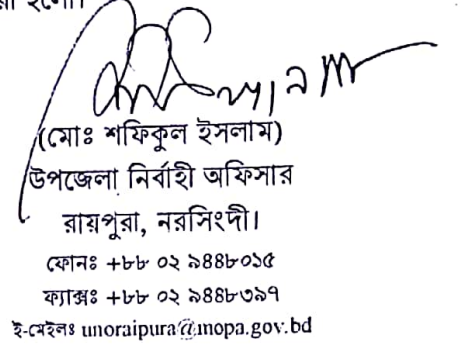 হলো।
(মোঃ শফিকুল ইসলাম)
উপজেলা নির্বাহী অফিসার
রায়পুরা, নরসিংদী।
ফোনঃ +৮৮ ০২ ৯৪৪৮০১৫
ফ্যাক্সঃ +৮৮ ০২ ৯৪৪৮৩৯৭
ই-মেইলঃ unoraipura@mopa.gov.bd